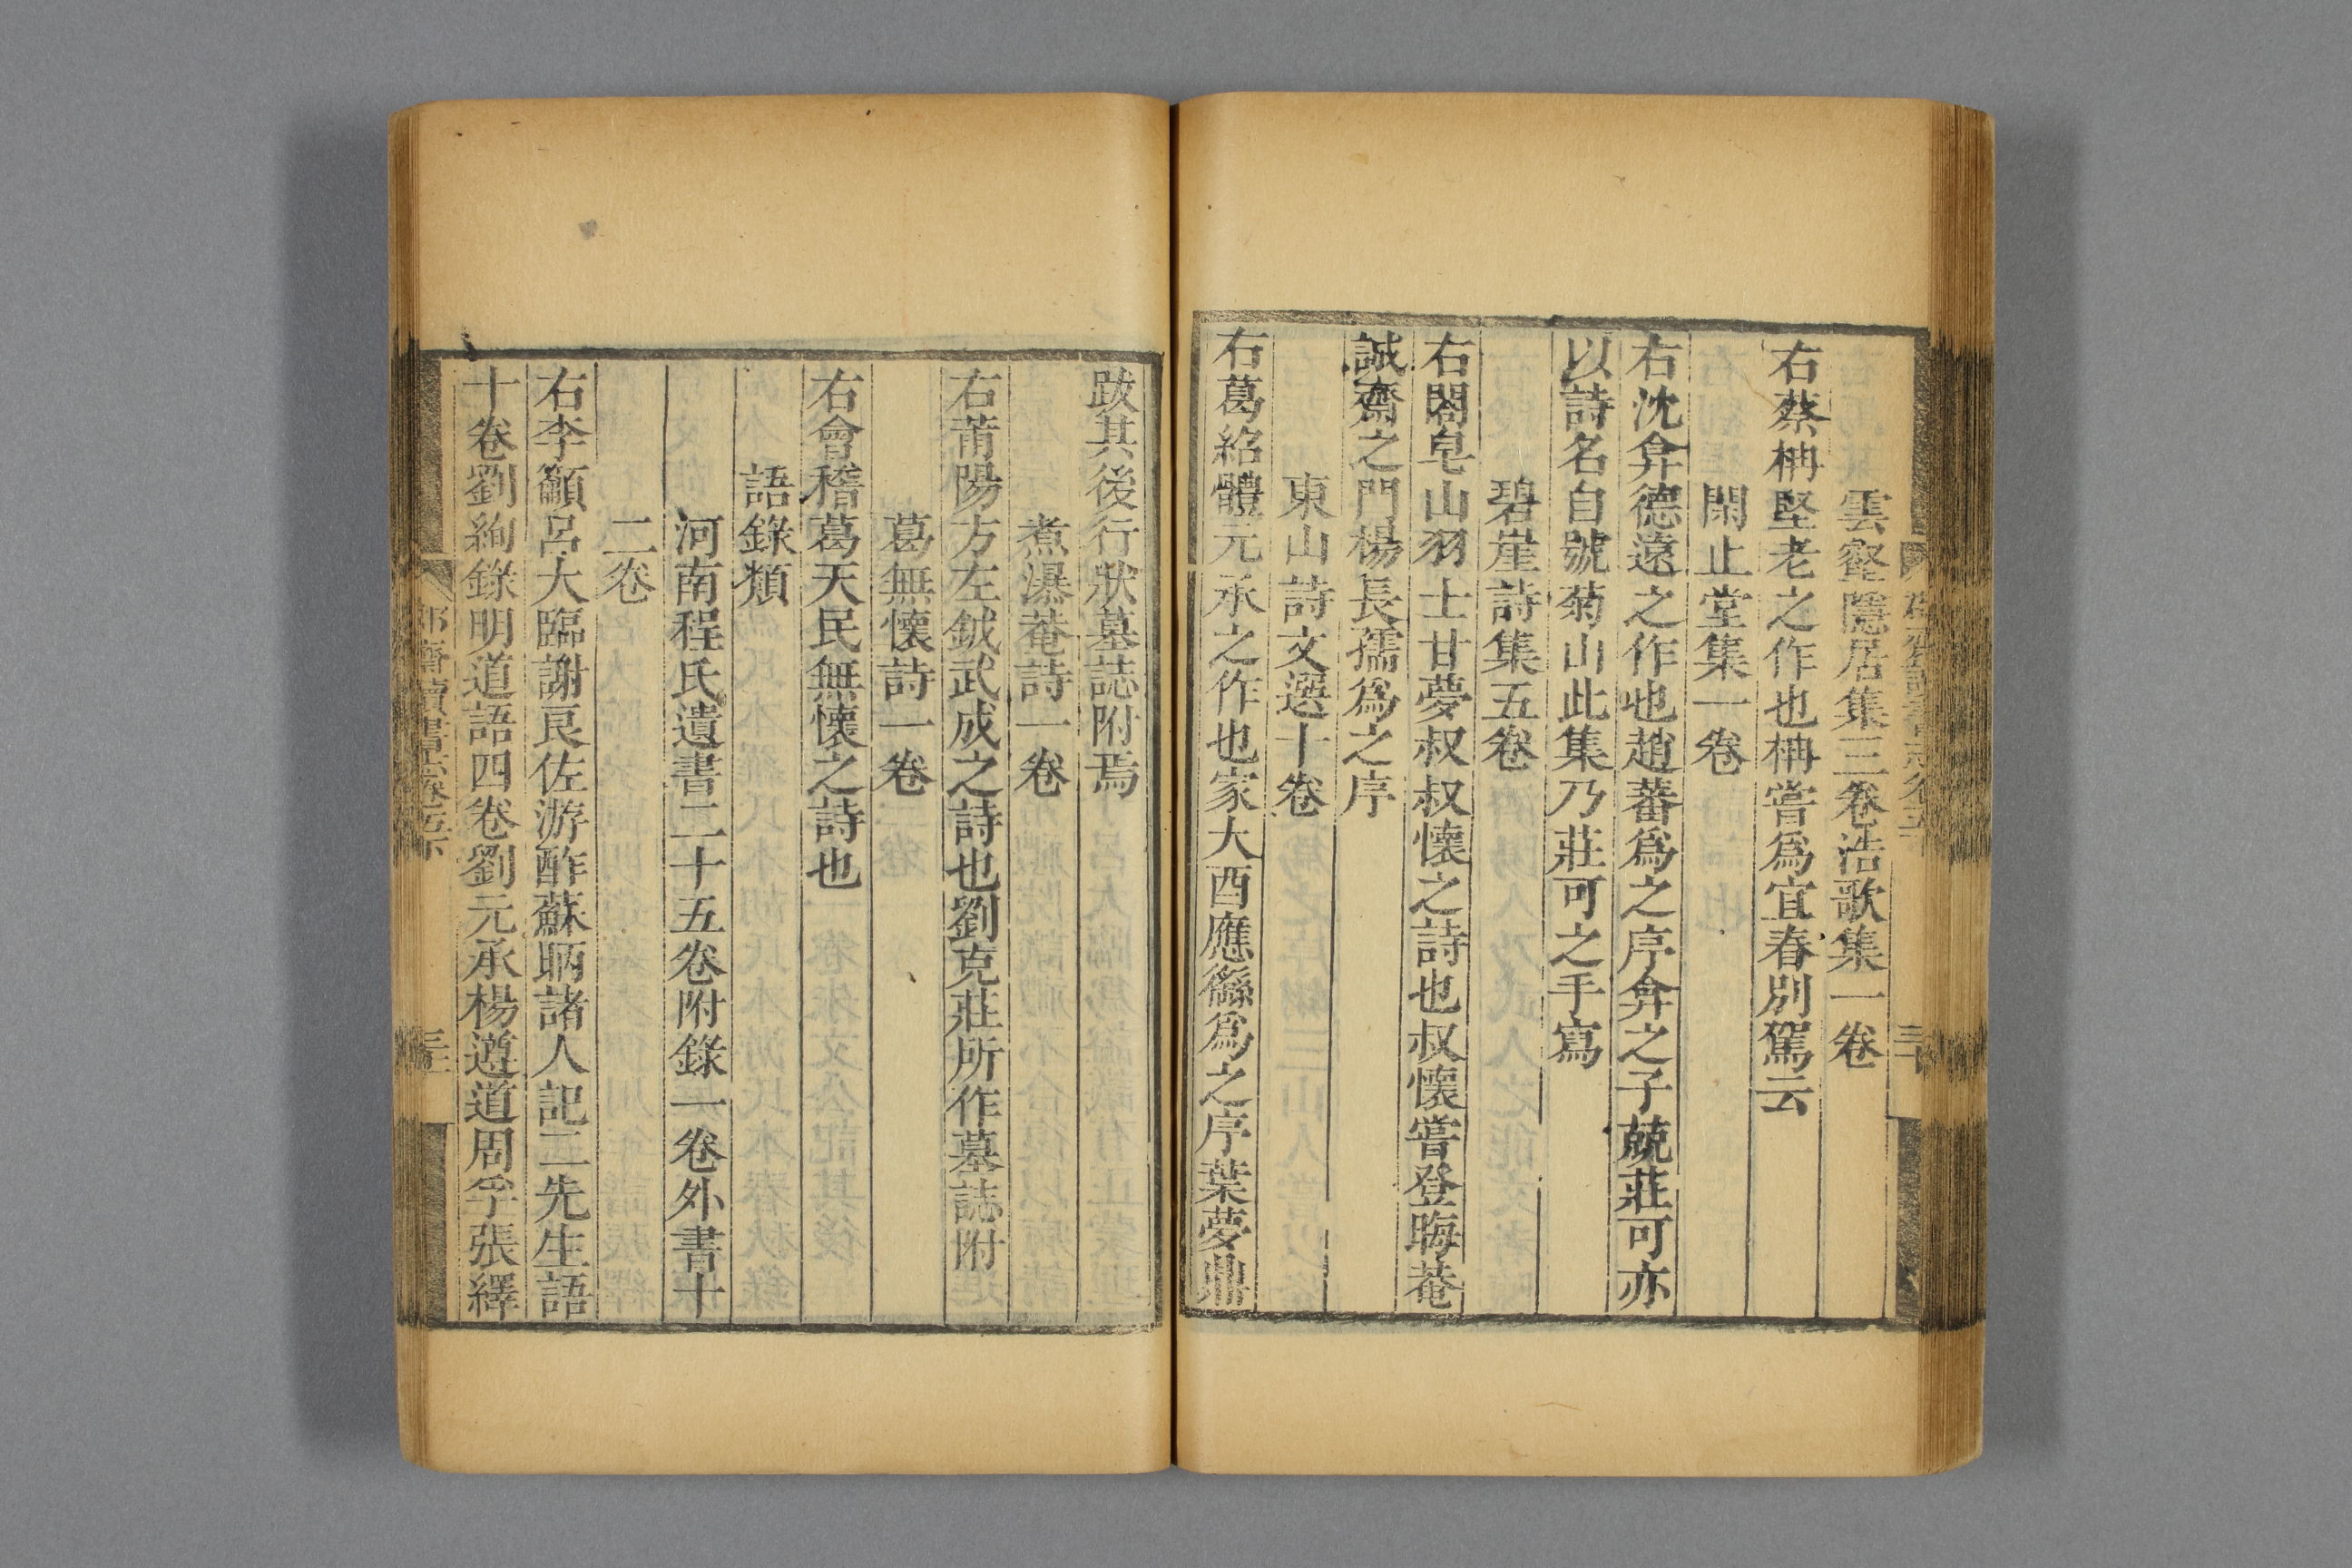 雲壑隱居集三卷浩歌集一卷
右蔡柟堅老之作也柟嘗爲宜春別駕云
閑止堂集一卷
右沈弅德遠之作也趙蕃爲之序弅之子兢莊可亦
以詩名自號菊山此集乃莊可之手寫
碧崖詩集五卷
右閤皂山羽士甘夢叔叔懷之詩也叔懷嘗登晦菴
誠齋之門楊長孺爲之序
東山詩文選十卷
右葛紹體元承之作也家大酉應繇爲之序葉夢鼎
跋其後行狀墓誌附焉
煮瀑菴詩一卷
右莆陽方左鉞武成之詩也劉克莊所作墓誌附
葛無懷詩一卷
右會稽葛天民無懷之詩也
語錄類
河南程氏遺書二十五卷附錄一卷外書十
二卷
右李籲呂大臨謝良佐游酢蘇昞諸人記二先生語
十卷劉絢錄明道語四卷劉元承楊遵道周孚張繹